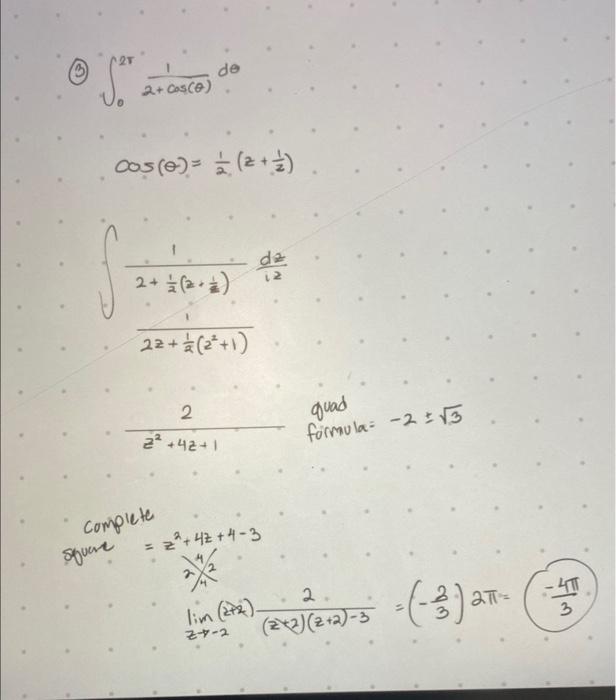 ③ ∫₀^2π 1/(2+cos(θ)) dθ
cos(θ) = 1/2 (z + 1/z)
∫ 1/(2 + 1/2(z + 1/z)) dz/iz
1/(2z + 1/2(z²+1))
2/(z² + 4z + 1) quad formula = -2 ± √3
complete square = z² + 4z + 4 - 3
4
2 2
4
lim z→-2 (z+2) 2/((z+2)(z+2)-3) = (-2/3) 2π = -4π/3